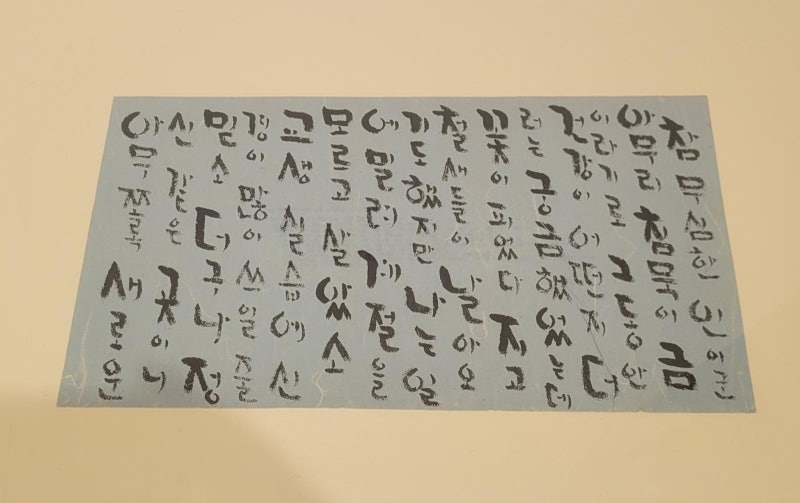 참 무심한
아무리 침묵이 금
이라기로 그동안
건강이 어떤지 더
러는 궁금했었는데
꽃이 피었다 지고
철새들이 날아오
기도 했지만 나는 일
에 밀려 계절을
모르고 살았소
교생 실습에 신
경이 많이 쓰일 줄
믿소 더구나 정
신 같은 곳이니
아무쪼록 새로운